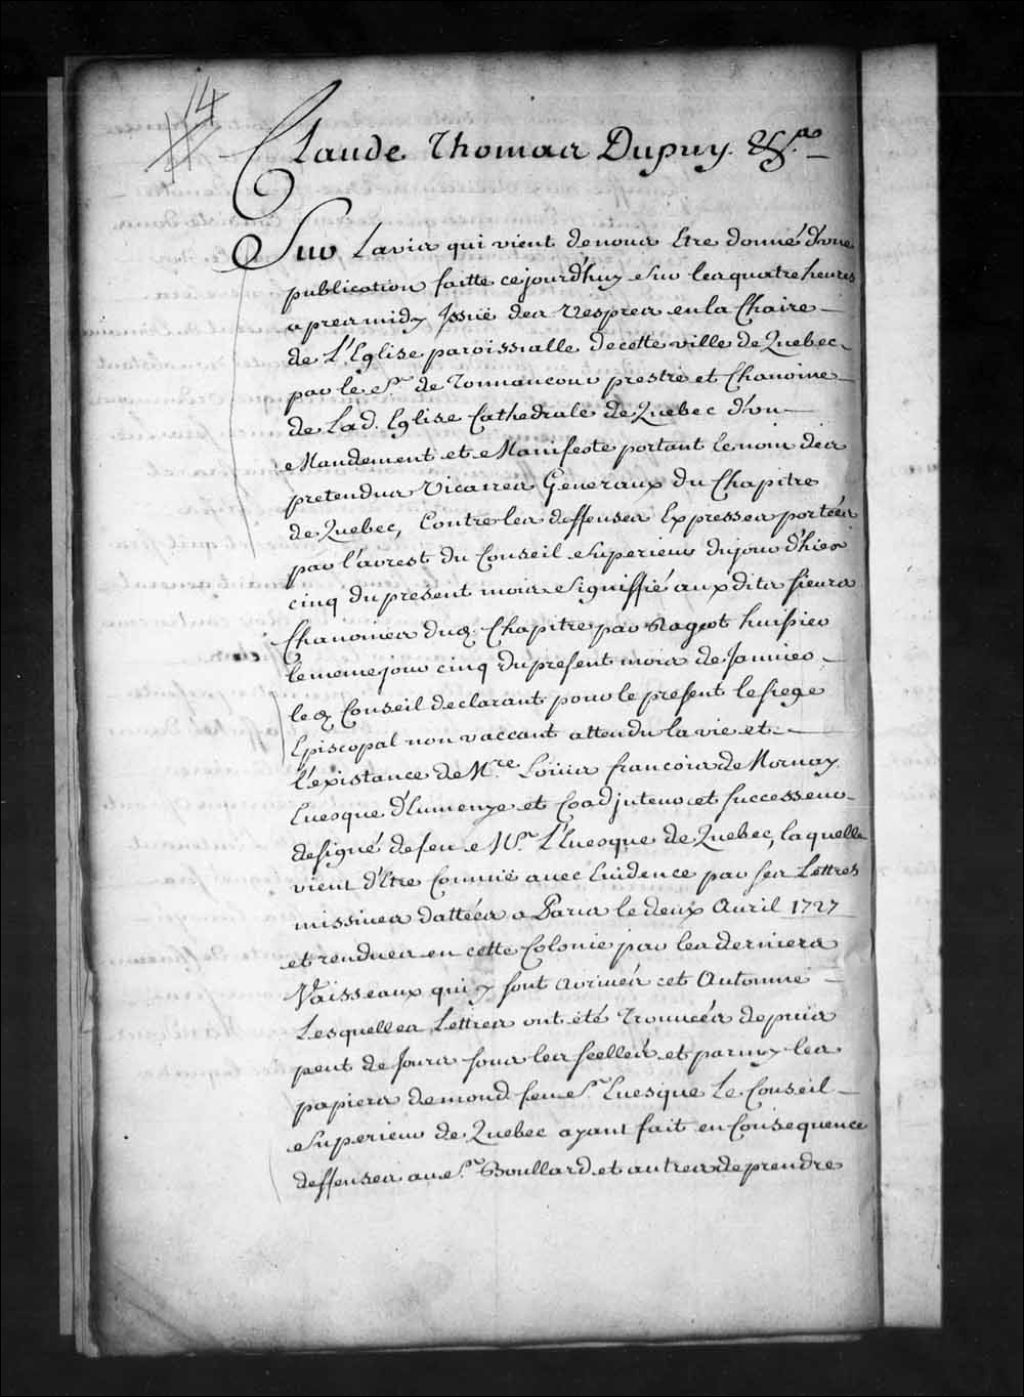 14
Claude Thomas Dupuy. &c.a
Sur Lavis qui vient denous Etre donné d'vne
publication faitte cejourd'huy Sur les quatre heures
apres midy Jssuë des Vespres en la Chaire
de L'Eglise paroissialle de cette ville de Quebec
par le Sr. de Tonnancour prestre et Chanoine
de Lad. Eglise Cathedrale de Quebec d'vn
Mandement et Manifeste portant le nom des
pretendus Vicaires Generaux du Chapitre
de Quebec, Contre les deffenses Expresses portées
par l'arrest du Conseil Superieur du jour d'hier
cinq du present mois Signiffié aux dits sieurs
Chanoines dud. Chapitre par Ragot huissier
le meme jour cinq du present mois de Janvier
led. Conseil declarant pour le present le siege
Episcopal non vaccant attendu la vie et
l'existance de Mre. Loüis francois de Mornay
Euesque d'Eumenye et Coadjuteur et successeur
designé de feu Mr. L'Euesque de Quebec, laquelle
vient d'Etre Connuë auec Euidence par ses Lettres
missiues dattées a Paris le deux Auril 1727
et rendues en cette Colonie par les derniers
Vaisseaux qui y sont arriués cet Automne
Lesquelles Lettres ont été Trouuées depuis
peut de Jours sous les scellés et parmy les
papiers de mond. feu Sr. Euesque Le Conseil
Superieur de Quebec ayant fait en Consequence
deffenses au Sr. Boullard et autres de prendre